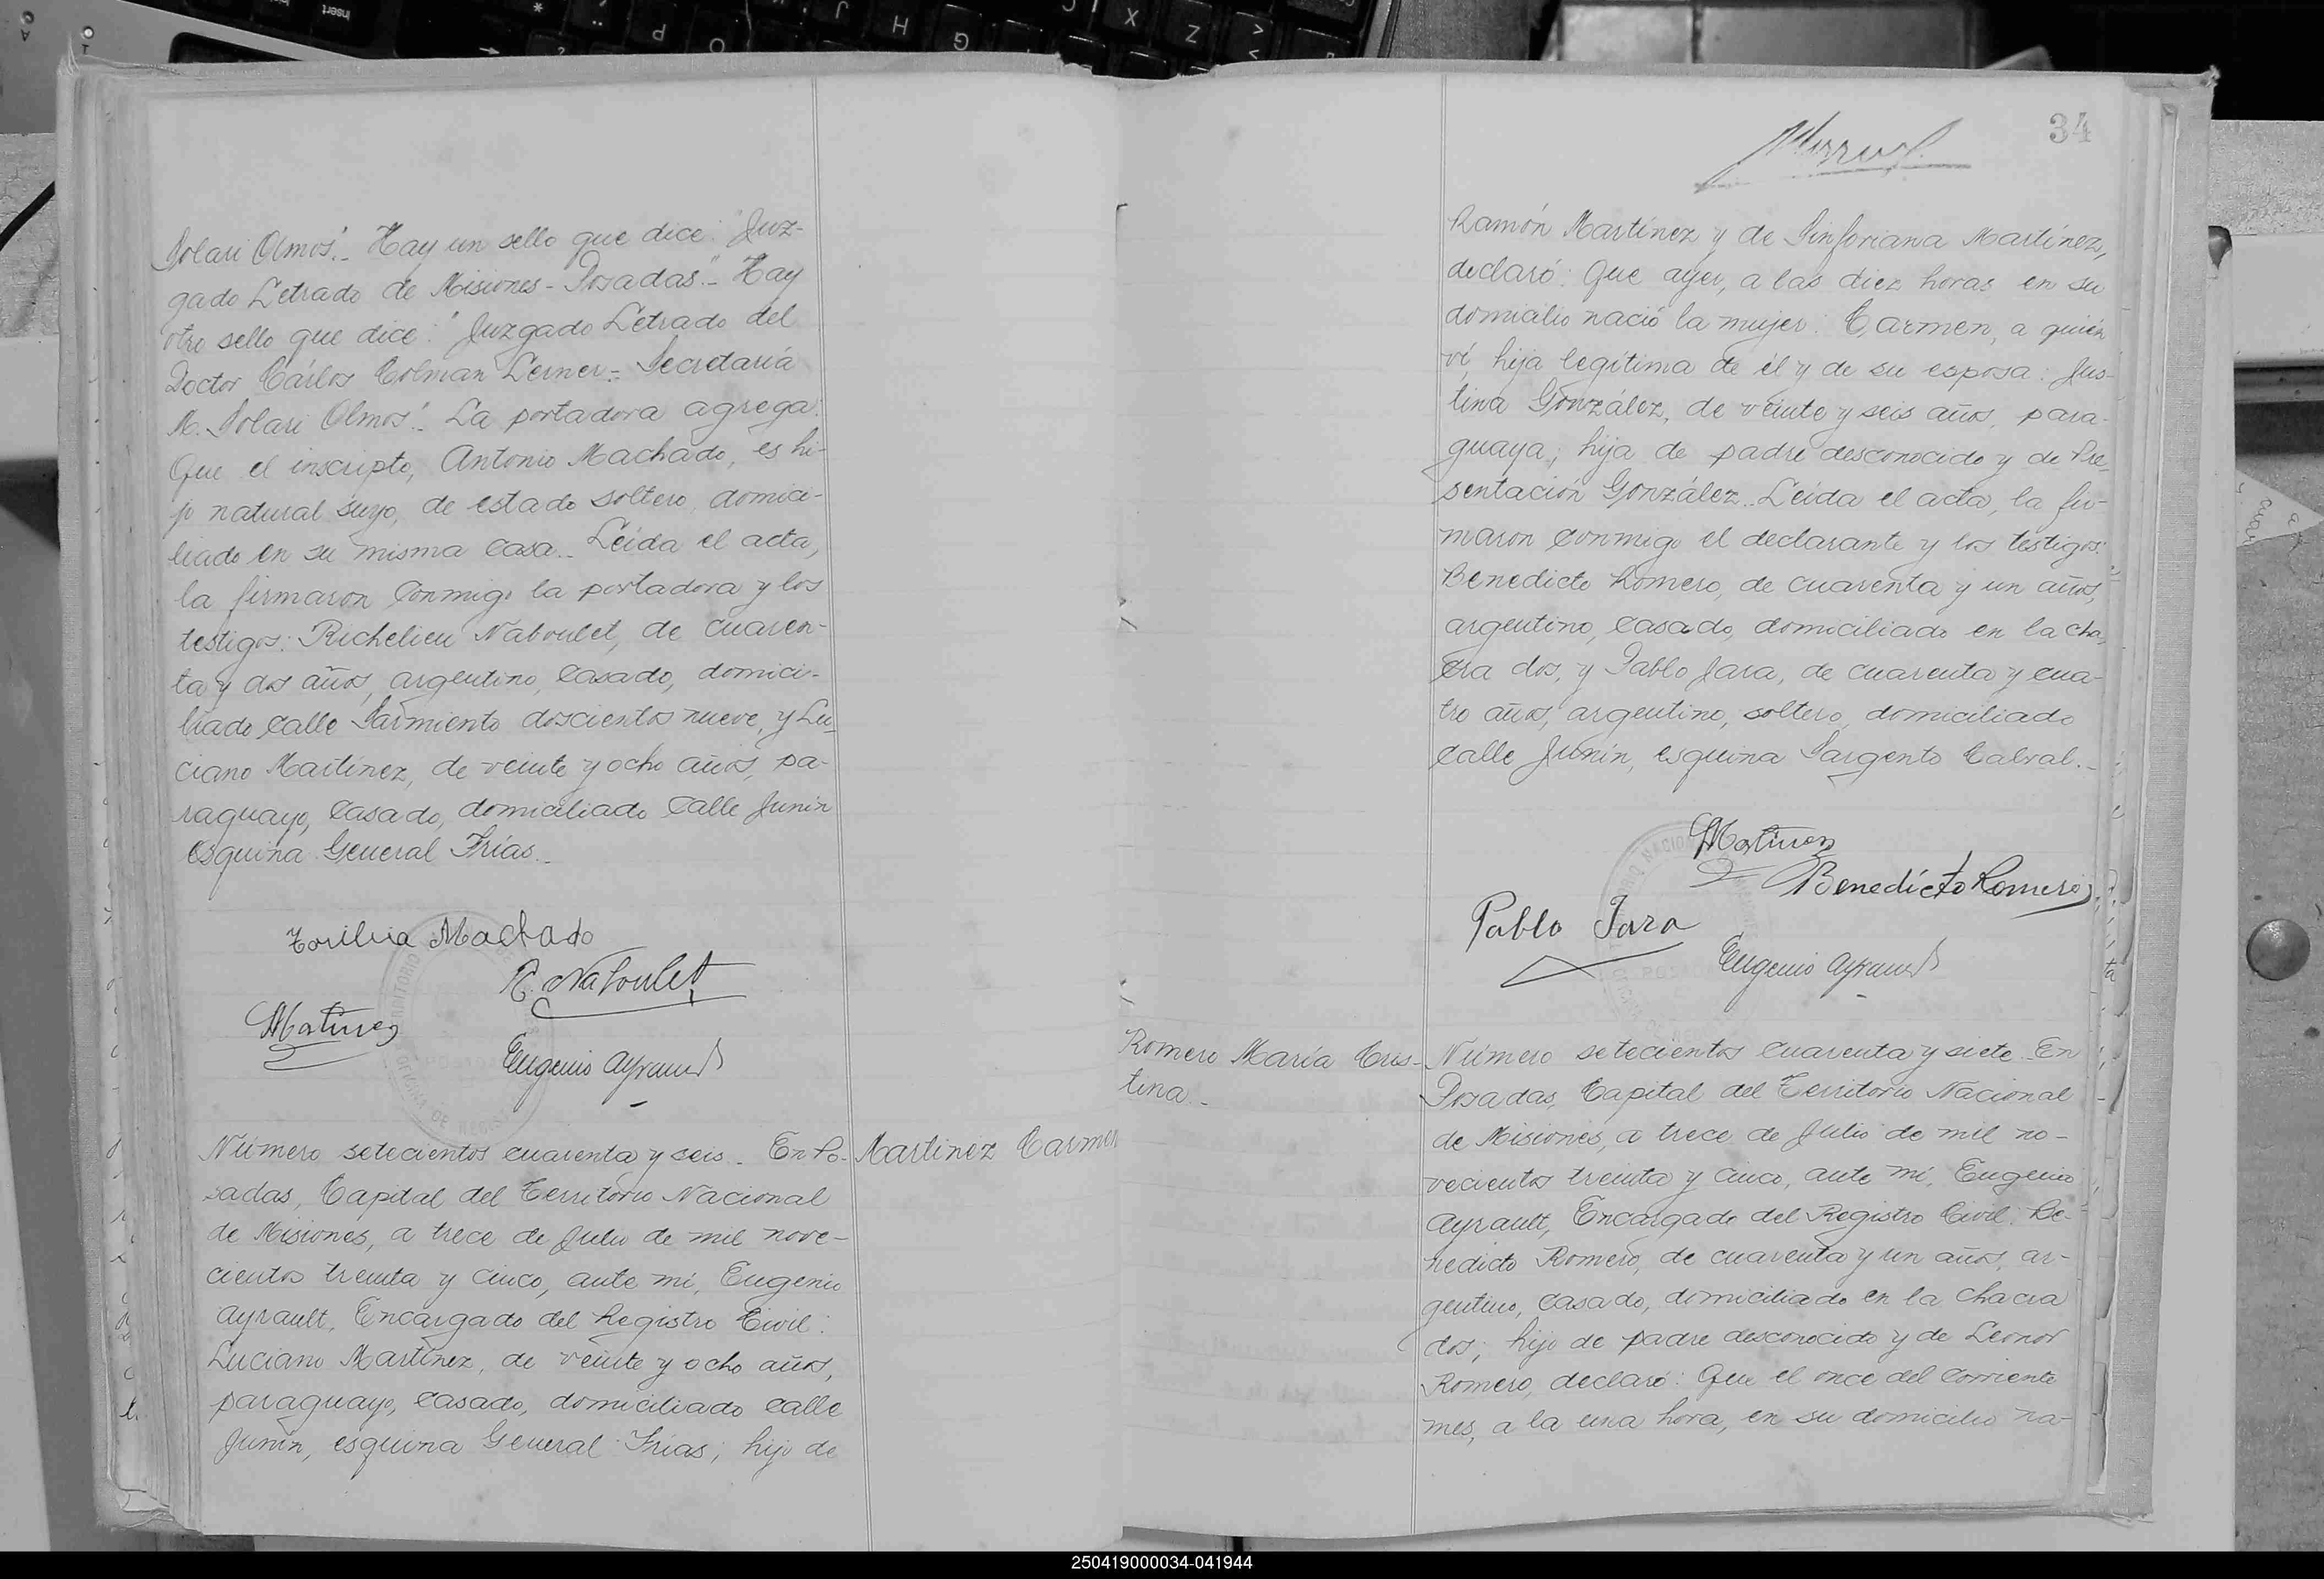 Solari Olmos".- Hay un sello que dice: "Juz-
gado Letrado de Misiones - Posadas".- Hay
otro sello que dice: "Juzgado Letrado del
Doctor Cárlos Colman Lerner - Secretaría
M. Solari Olmos".- La portadora agrega:
Que el inscripto, Antonio Machado, es hi-
jo natural suyo, de estado soltero, domici-
liado en su misma casa.- Leída el acta,
la firmaron conmigo la portadora y los
testigos: Richelieu Naboulet, de cuaren-
ta y dos años, argentino, casado, domici-
liado calle Sarmiento doscientos nueve, y Lu-
ciano Martínez, de veinte y ocho años, pa-
raguayo, casado, domiciliado calle Junín
esquina General Frías.-
Machado
R. Naboulet
Martinez
Eugenio Ayrault
Número setecientos cuarenta y seis.- En Po-
sadas, Capital del Territorio Nacional
de Misiones, a trece de Julio de mil nove-
cientos treinta y cinco, ante mí, Eugenio
Ayrault, Encargado del Registro Civil:
Luciano Martínez, de veinte y ocho años,
paraguayo, casado, domiciliado calle
Junín, esquina General Frías; hijo de
Martinez Carmen
34
Ramón Martínez y de Sinforiana Martínez,
declaró: Que ayer, a las diez horas en su
domicilio nació la mujer: Carmen, a quién
ví, hija legítima de él y de su esposa: Jus-
tina González, de veinte y seis años, para-
guaya; hija de padre desconocido y de Pre-
sentación González.- Leída el acta, la fir-
maron conmigo el declarante y los testigos:
Benedicto Romero, de cuarenta y un años,
argentino, casado, domiciliado en la cha-
cra dos, y Pablo Jara, de cuarenta y cua-
tro años, argentino, soltero, domiciliado
calle Junín, esquina Sargento Cabral.-
Martinez
Benedicto Romero
Pablo Jara
Eugenio Ayrault
Romero María Cris-
tina.-
Número setecientos cuarenta y siete. En
Posadas, Capital del Territorio Nacional
de Misiones, a trece de Julio de mil no-
vecientos treinta y cinco, ante mí, Eugenio
Ayrault, Encargado del Registro Civil: Be-
nedicto Romero, de cuarenta y un años, ar-
gentino, casado, domiciliado en la chacra
dos; hijo de padre desconocido y de Leonor
Romero, declaró: Que el once del corriente
mes, a la una hora, en su domicilio na-
250419000034-041944